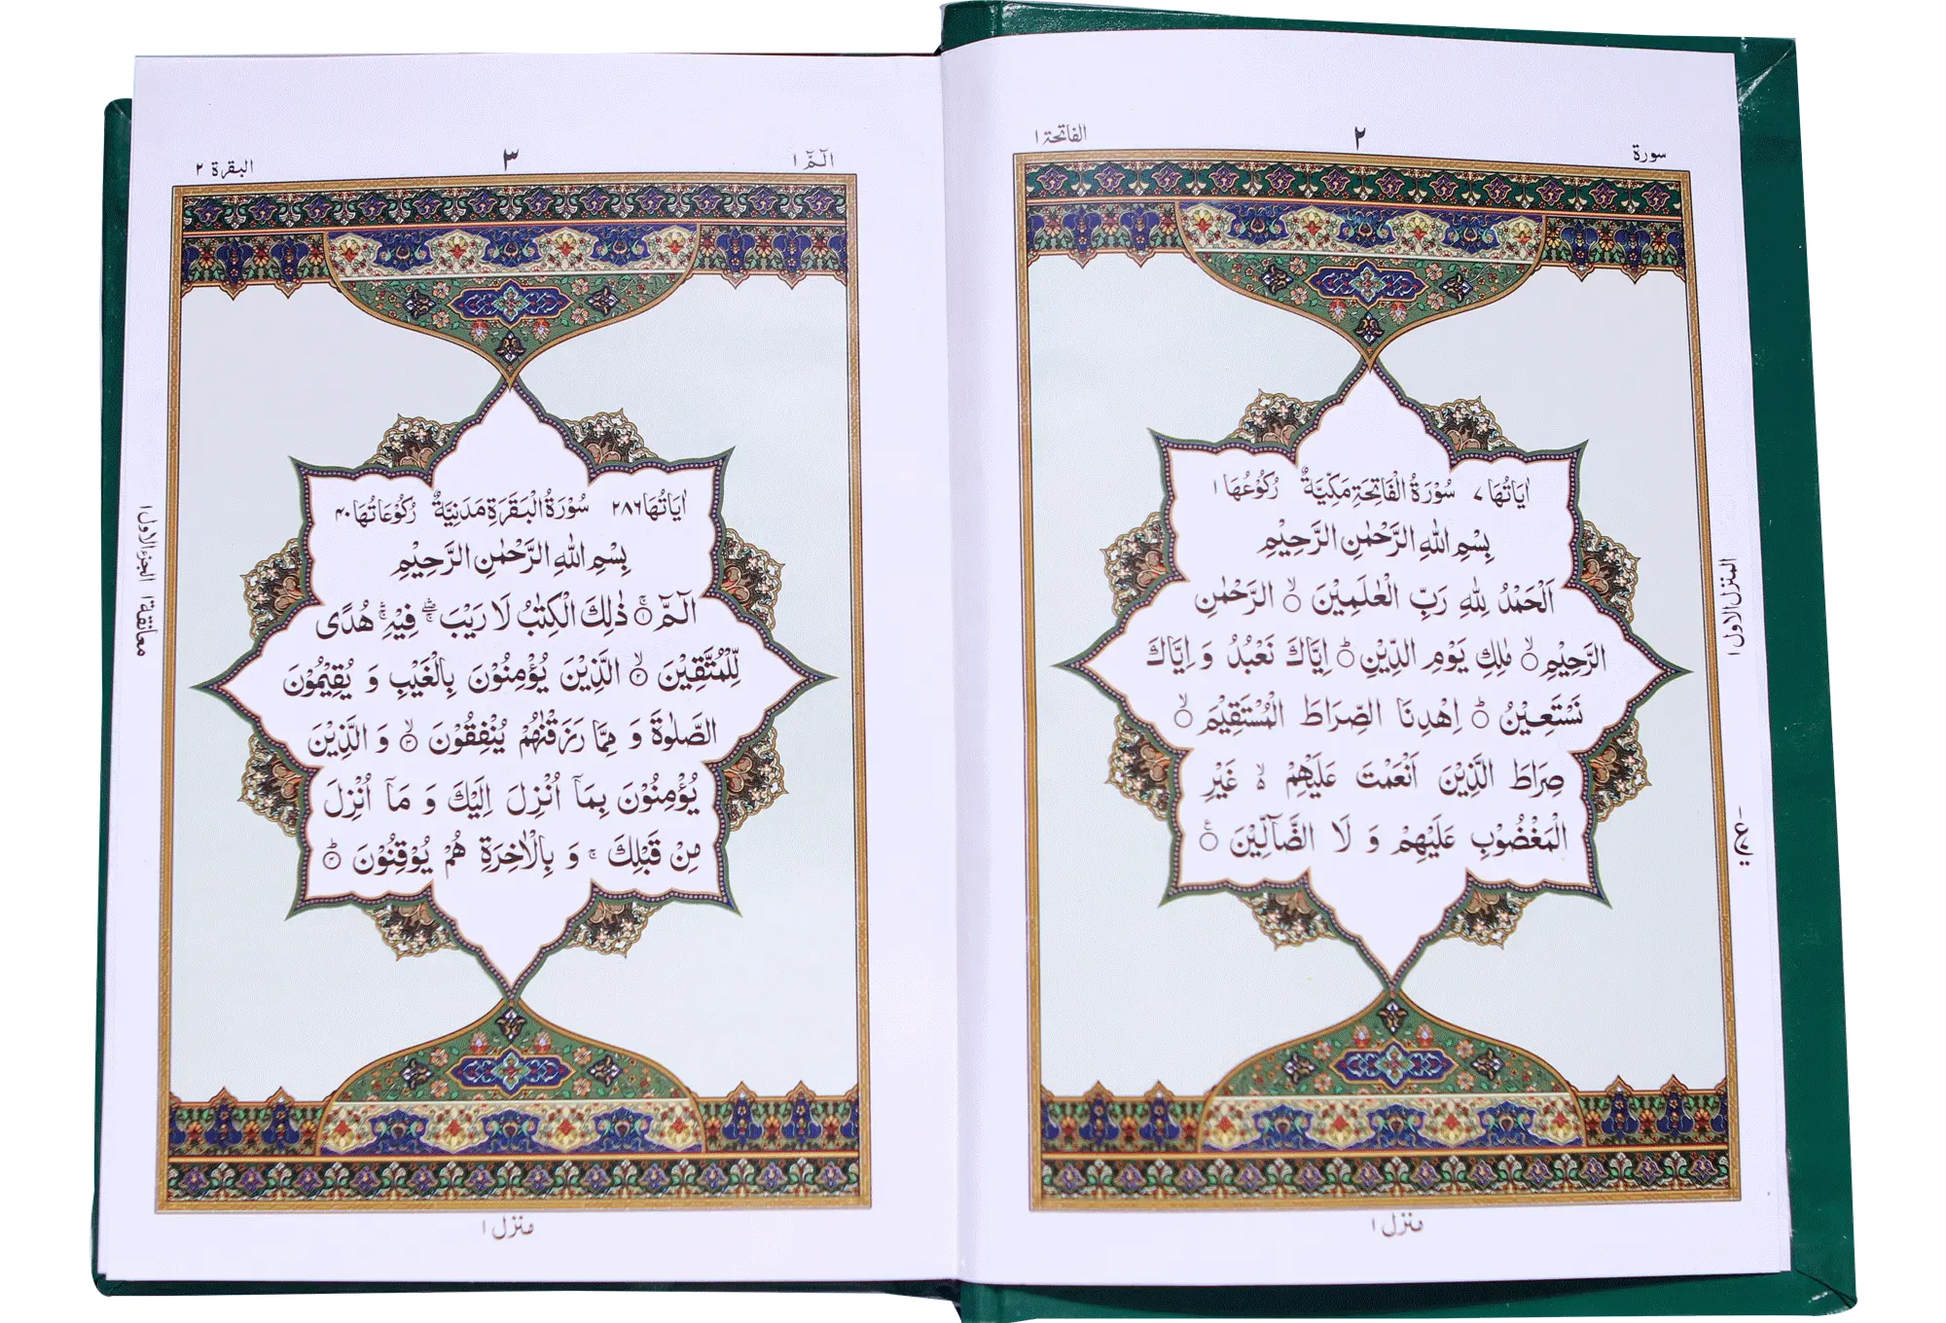 سورة
٢
الفاتحة ١
اٰيَاتُهَا ٧ سُوْرَةُ الْفَاتِحَةِ مَكِّيَّةٌ رُكُوْعُهَا ١
بِسْمِ اللهِ الرَّحْمٰنِ الرَّحِيْمِ
اَلْحَمْدُ لِلّٰهِ رَبِّ الْعٰلَمِيْنَ ۙ الرَّحْمٰنِ
الرَّحِيْمِ ۙ مٰلِكِ يَوْمِ الدِّيْنِ ؕ اِيَّاكَ نَعْبُدُ وَ اِيَّاكَ
نَسْتَعِيْنُ ؕ اِهْدِنَا الصِّرَاطَ الْمُسْتَقِيْمَ ۙ
صِرَاطَ الَّذِيْنَ اَنْعَمْتَ عَلَيْهِمْ ۙ غَيْرِ
الْمَغْضُوْبِ عَلَيْهِمْ وَ لَا الضَّآلِّيْنَ ۧ
المنزل الاول ١
منزل ١
الٓمّٓ ١
٣
البقرة ٢
اٰيَاتُهَا ٢٨٦ سُوْرَةُ الْبَقَرَةِ مَدَنِيَّةٌ رُكُوْعَاتُهَا ۴۰
بِسْمِ اللهِ الرَّحْمٰنِ الرَّحِيْمِ
الٓمّٓ ۚ ١ ذٰلِكَ الْكِتٰبُ لَا رَيْبَ ۛۖ فِيْهِ ۛۚ هُدًى
لِّلْمُتَّقِيْنَ ۙ ٢ الَّذِيْنَ يُؤْمِنُوْنَ بِالْغَيْبِ وَ يُقِيْمُوْنَ
الصَّلٰوةَ وَ مِمَّا رَزَقْنٰهُمْ يُنْفِقُوْنَ ۙ ٣ وَ الَّذِيْنَ
يُؤْمِنُوْنَ بِمَآ اُنْزِلَ اِلَيْكَ وَ مَآ اُنْزِلَ
مِنْ قَبْلِكَ ۚ وَ بِالْاٰخِرَةِ هُمْ يُوْقِنُوْنَ ؕ ۴
معانقة ١ الجزء الاول ١
منزل ١